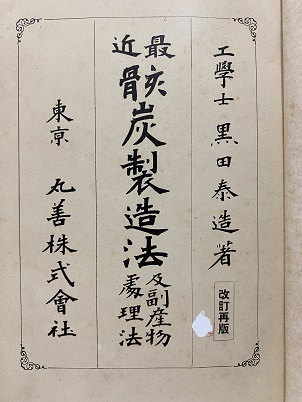 工學士 黒田泰造著
改訂再版
最近
骸炭製造法
及副産物
處理法
東京 丸善株式會社